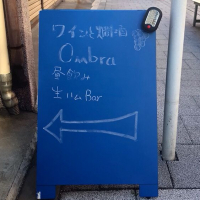 ワインと燗酒
Ombra
昼のみ
生ハムBar